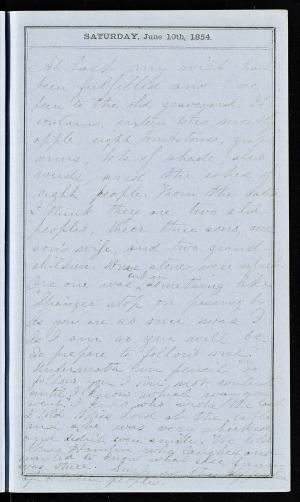 SATURDAY, June 10th, 1854.
At last my wish has
been fulfilled and I've
been to the old graveyard. It
contains sixteen trees, mostly
apple, eight tombstones, grape
vines, lots of shade, also
weeds and the ashes of
eight people. From the dates
I think they are two old
people, their three sons, one
son's wife, and two grand
children. stones were
one was something like
"Stranger stop on passing by
As you are so once was I
As I am so you will be
So prepare to follow me."
Underneath in pencil "To
follow you I am not content
until I know which way you
went."
I told Miss
and she was very shocked
and didn't even smile. We told
who laughed and
wanted to know what else
was there. Such
people.